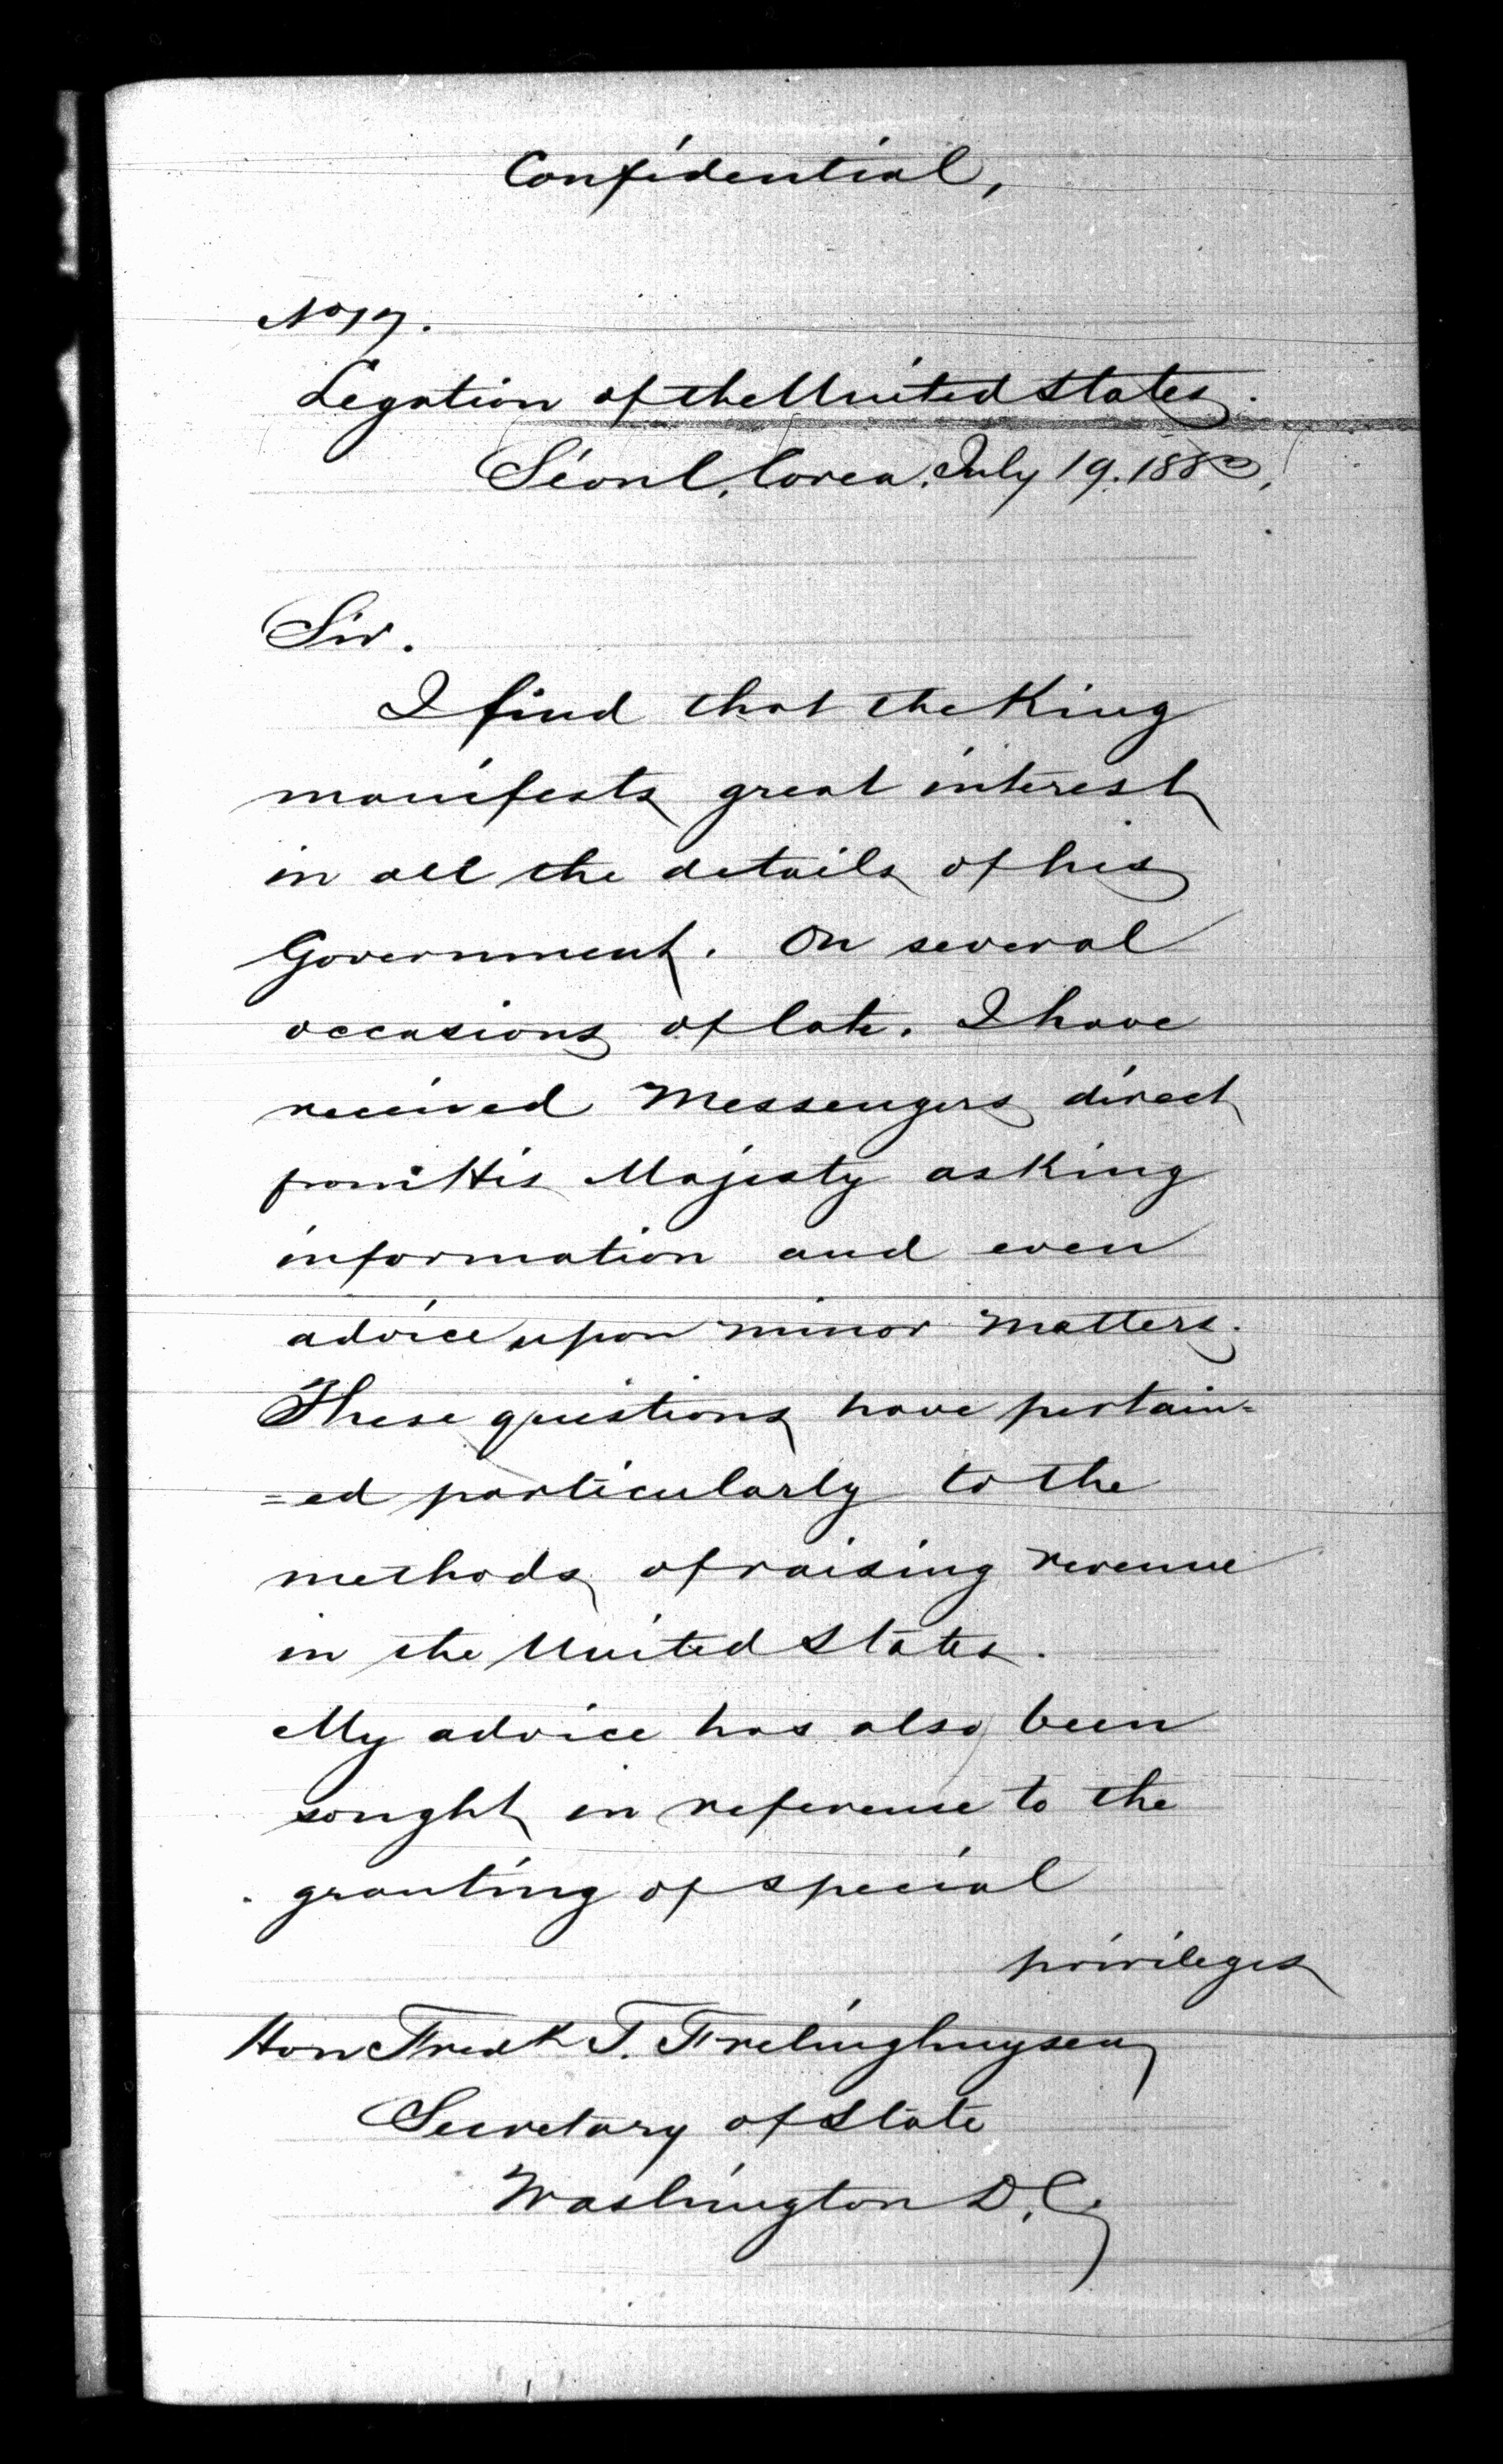 Confidential,
No 17.
Legation of the United States.
Séoul, Corea, July 19. 1883,
Sir.
I find that the King
manifests great interest
in all the details of his
Government. On several
occasions of late. I have
received Messengers direct
from His Majesty asking
information and even
advice upon minor matters.
These questions have pertain=
=ed particularly to the
methods of raising revenue
in the United States.
My advice has also been
sought in reference to the
granting of special
privileges
Hon Fredk T. Frelinghuysen
Secretary of State
Washington D.C.